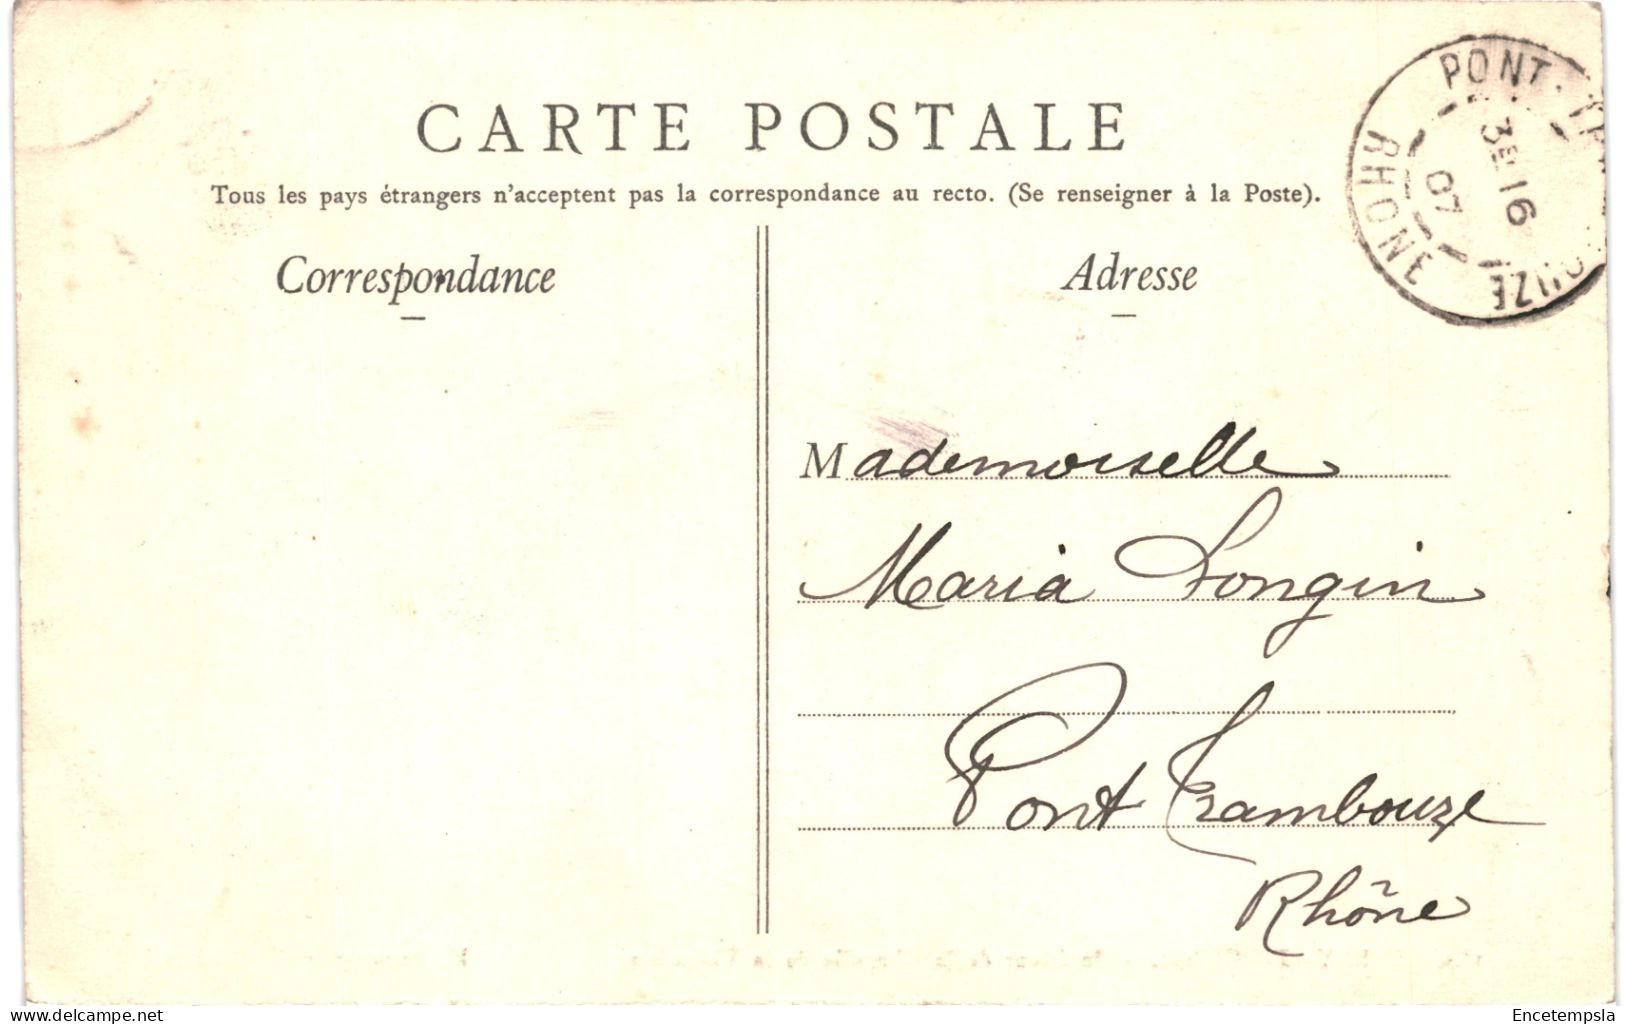 CARTE POSTALE
Tous les pays étrangers n'acceptent pas la correspondance au recto. (Se renseigner à la Poste).
Correspondance
Adresse
PONT-TRAMBOUZE
RHONE
3E 16
07
Mademoiselle
Maria Longin
Pont Trambouze
Rhône
delcampe.net
Encetempsla